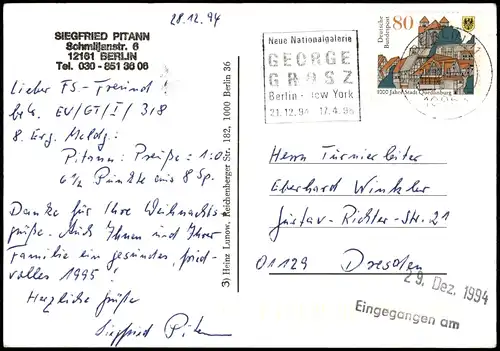 28.12.94
SIEGFRIED PITANN
Schmiljanstr. 6
12161 BERLIN
Tel. 030 - 851 36 06
Lieber FS-Freund!
betr. EU/GT/I/318
8. Erg. Meldg:
Pitann : Preuße : 1:0
6½ Punkte aus 8 Sp.
Danke für Ihre Weihnachts-
grüße. Auch Ihnen und Ihrer
Familie ein gesundes, fried-
volles 1995!
Herzliche Grüße
Siegfried Pitann
3) Heinz Lunow, Reichenberger Str. 182, 1000 Berlin 36
Neue Nationalgalerie
GEORGE
GROSZ
Berlin - New York
21.12.94 - 17.4.95
Deutsche
Bundespost
80
1000 Jahre Stadt Quedlinburg
Herrn Turnierleiter
Eberhard Winkler
Gustav-Richter-Str. 21
01129 Dresden
29. Dez. 1994
Eingegangen am